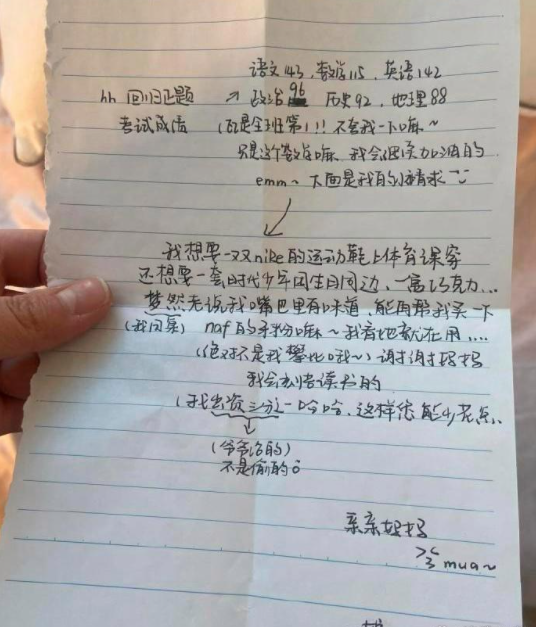 语文143,数学115,英语142
hh 回归正题 → 政治96 历史92,地理88
考试成绩 (可是全班第1!! 不夸我一下嘛~
只是这个数学嘛 我会继续加油的
emm~ 下面是我的小请求
我想要一双nike的运动鞋上体育课穿
还想要一套时代少年团生日周边,一盒巧克力...
梦然无说我嘴巴里有味道,能再帮我买一下
(我同桌) naf的牙粉嘛~我看他就在用....
(绝对不是我攀比哦~)谢谢妈妈
我会认真读书的
(我出资三分之一哈哈,这样您能少花点..
(爷爷给的)
不是偷的
亲亲妈妈
mua~